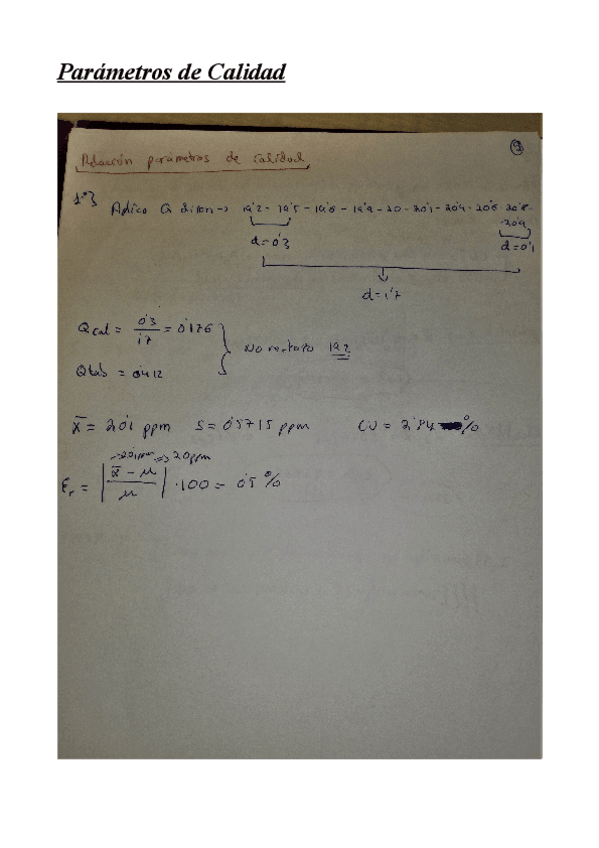 Parámetros de Calidad
Relación parámetros de calidad
9
1º}
Aplico Q dixon → 19'2 - 19'5 - 19'6 - 19'9 - 20 - 20'1 - 20'4 - 20'6 - 20'8 -
20'9
d = 0'3
d = 0'1
d = 1'7
Qcal = 0'3 / 1'7 = 0'176
No rechazo 19'2
Qtab = 0'412
x̄ = 20'1 ppm S = 0'5715 ppm CV = 2'84 %
→ 20'1 ppm → 20 ppm
Er = | (x̄ - μ) / μ | · 100 = 0'5 %